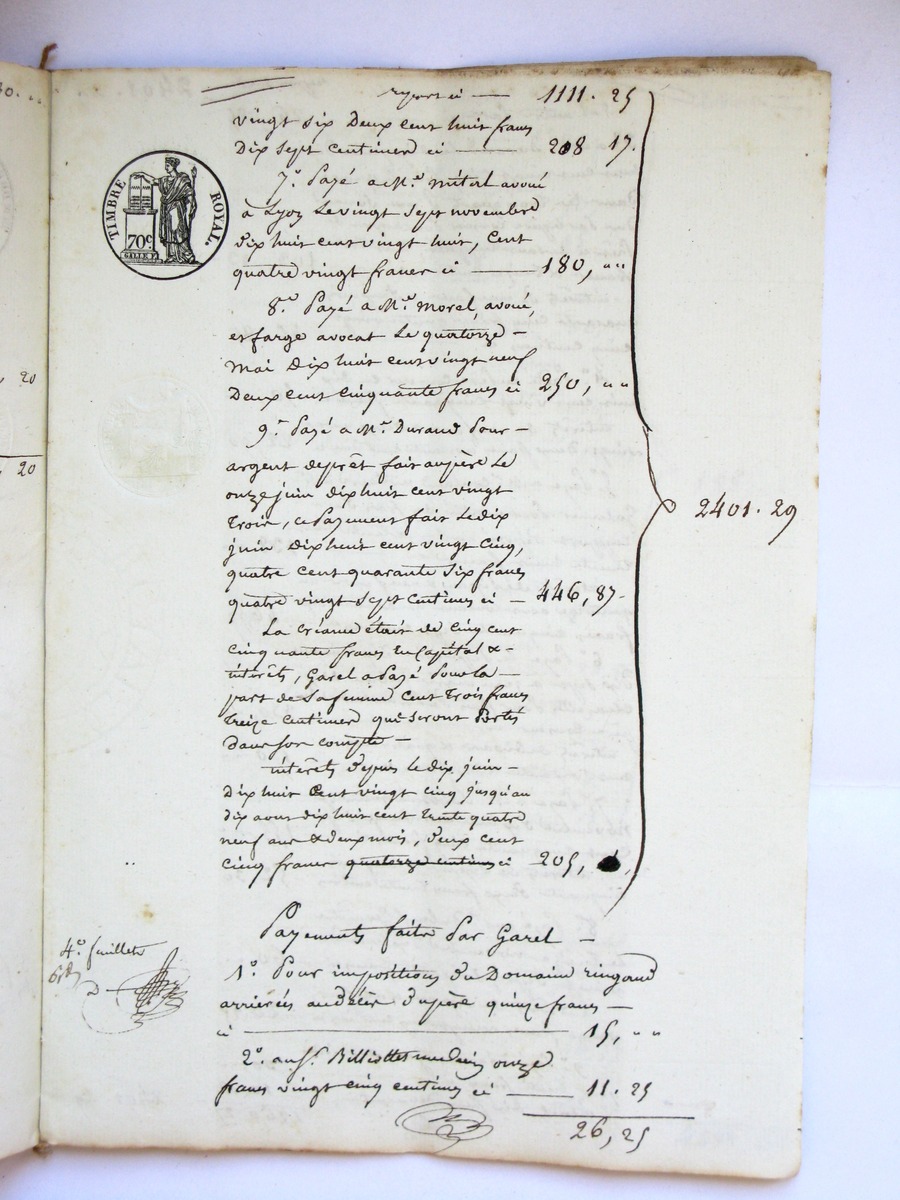 report ci — 1111. 25
vingt six Deux cent huit francs
Dix sept centimes ci — 208 17.
7.° Payé a M.e mital avoué
à Lyon Le vingt sept novembre
dix huit cent vingt huit, Cent
quatre vingt francs ci — 180, " "
8.° Payé a M.e Morel, avoué,
et farge avocat Le quatorze —
Mai Dix huit cent vingt neuf
Deux cent cinquante francs ci 250, " "
9.° Payé a M.e Durand Pour —
argent de prêt fait au père Le
onze juin dix huit cent vingt
trois, ce Payement fait Le dix
juin dix huit cent vingt cinq,
quatre cent quarante six francs
quatre vingt sept centimes ci — 446, 87-
La créance était de cinq cent
cinquante francs en Capital &-
intérêts, Garel a Payé Pour la —
part de sa femme cent trois francs
treize centimes qui seront Portés
dans son compte —
intérêts depuis le dix juin —
Dix huit Cent vingt cinq jusqu'au
dix aout dix huit cent trente quatre
neuf ans & deux mois, deux cent
cinq francs quatorze centimes ci 205,
2401. 29
Payements faits Par Garel —
1.° Pour impositions du Domaine
arrierées au décès du père quinze francs —
ci — 15, " "
2.° au S.r Billiottet medecin onze
francs vingt cinq centimes ci — 11. 25
26, 25
4.e feuillet
TIMBRE ROYAL.
70c
GALLE F.
20
20